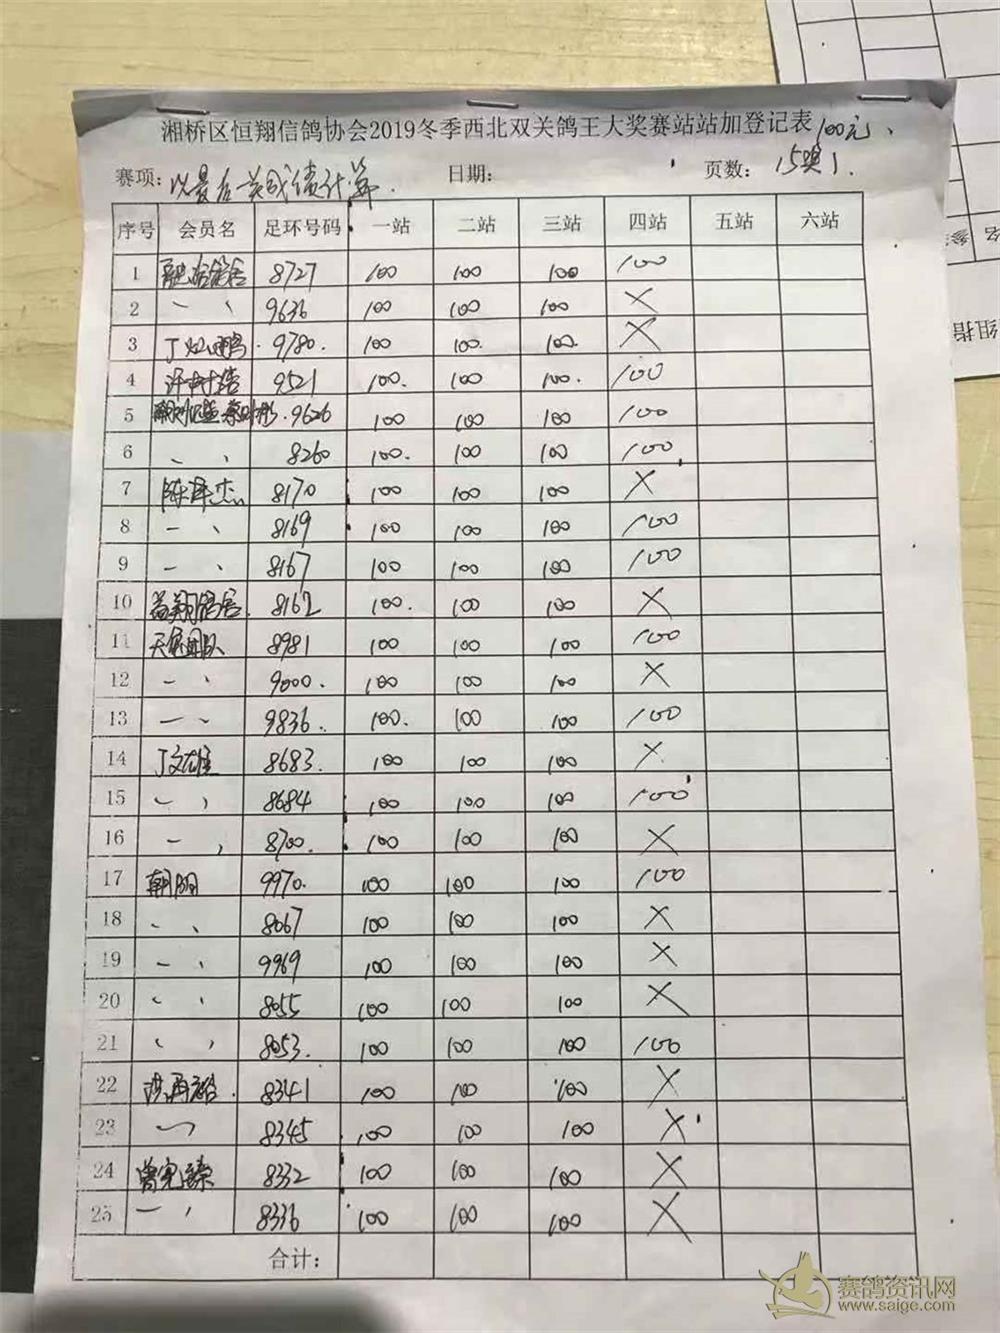 湘桥区恒翔信鸽协会2019冬季西北双关鸽王大奖赛站站加登记表 100元、
赛项: 以最后一关成绩计算. 日期: 页数: 15奖1.
序号 会员名 足环号码 一站 二站 三站 四站 五站 六站
1 8727 100 100 100 100
2 一 、 9636 100 100 100 X
3 9780. 100 100. 100. X
4 许树浩 9521 100. 100 100. 100
5 9626 100 100 100 100
6 、 、 8260 100. 100 100 100
7 陈泽杰 8170 100 100 100 X
8 一 、 8169 100 100 100 100
9 一 、 8167 100 100 100 100
10 翔鸽舍. 8162 100. 100 100 X
11 团队 8981 100 100 100 100
12 一 、 9000. 100 100 100 X
13 一 、 9836. 100. 100 100 100
14 丁文雄 8683. 100 100 100 X
15 一 、 8684 100 100 100 100
16 一 、 8700. 100 100 100 X
17 朝阳 9970. 100 100 100 100
18 、 、 8067 100 100 100 X
19 一 、 9969 100 100 100 X
20 、 、 8055 100 100 100 X
21 、 、 8053. 100 100 100 100
22 8341 100 100 100 X
23 一 、 8345 100 100 100 X
24 曾宪臻 8332 100 100 100 X
25 一 、 8336 100 100 100 X
合计:
组指
赛鸽资讯网
www.saige.com